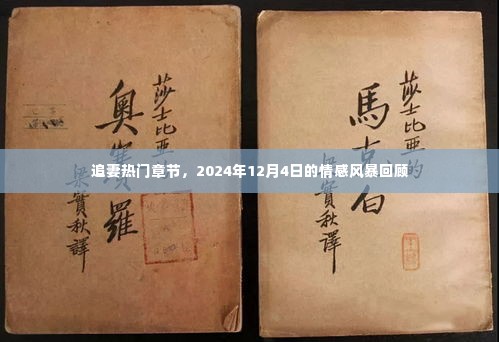 莎士比亞
奧賽羅
梁實秋譯
莎士比亞的
馬克白
梁實秋譯
追妻热门章节，2024年12月4日的情感风暴回顾